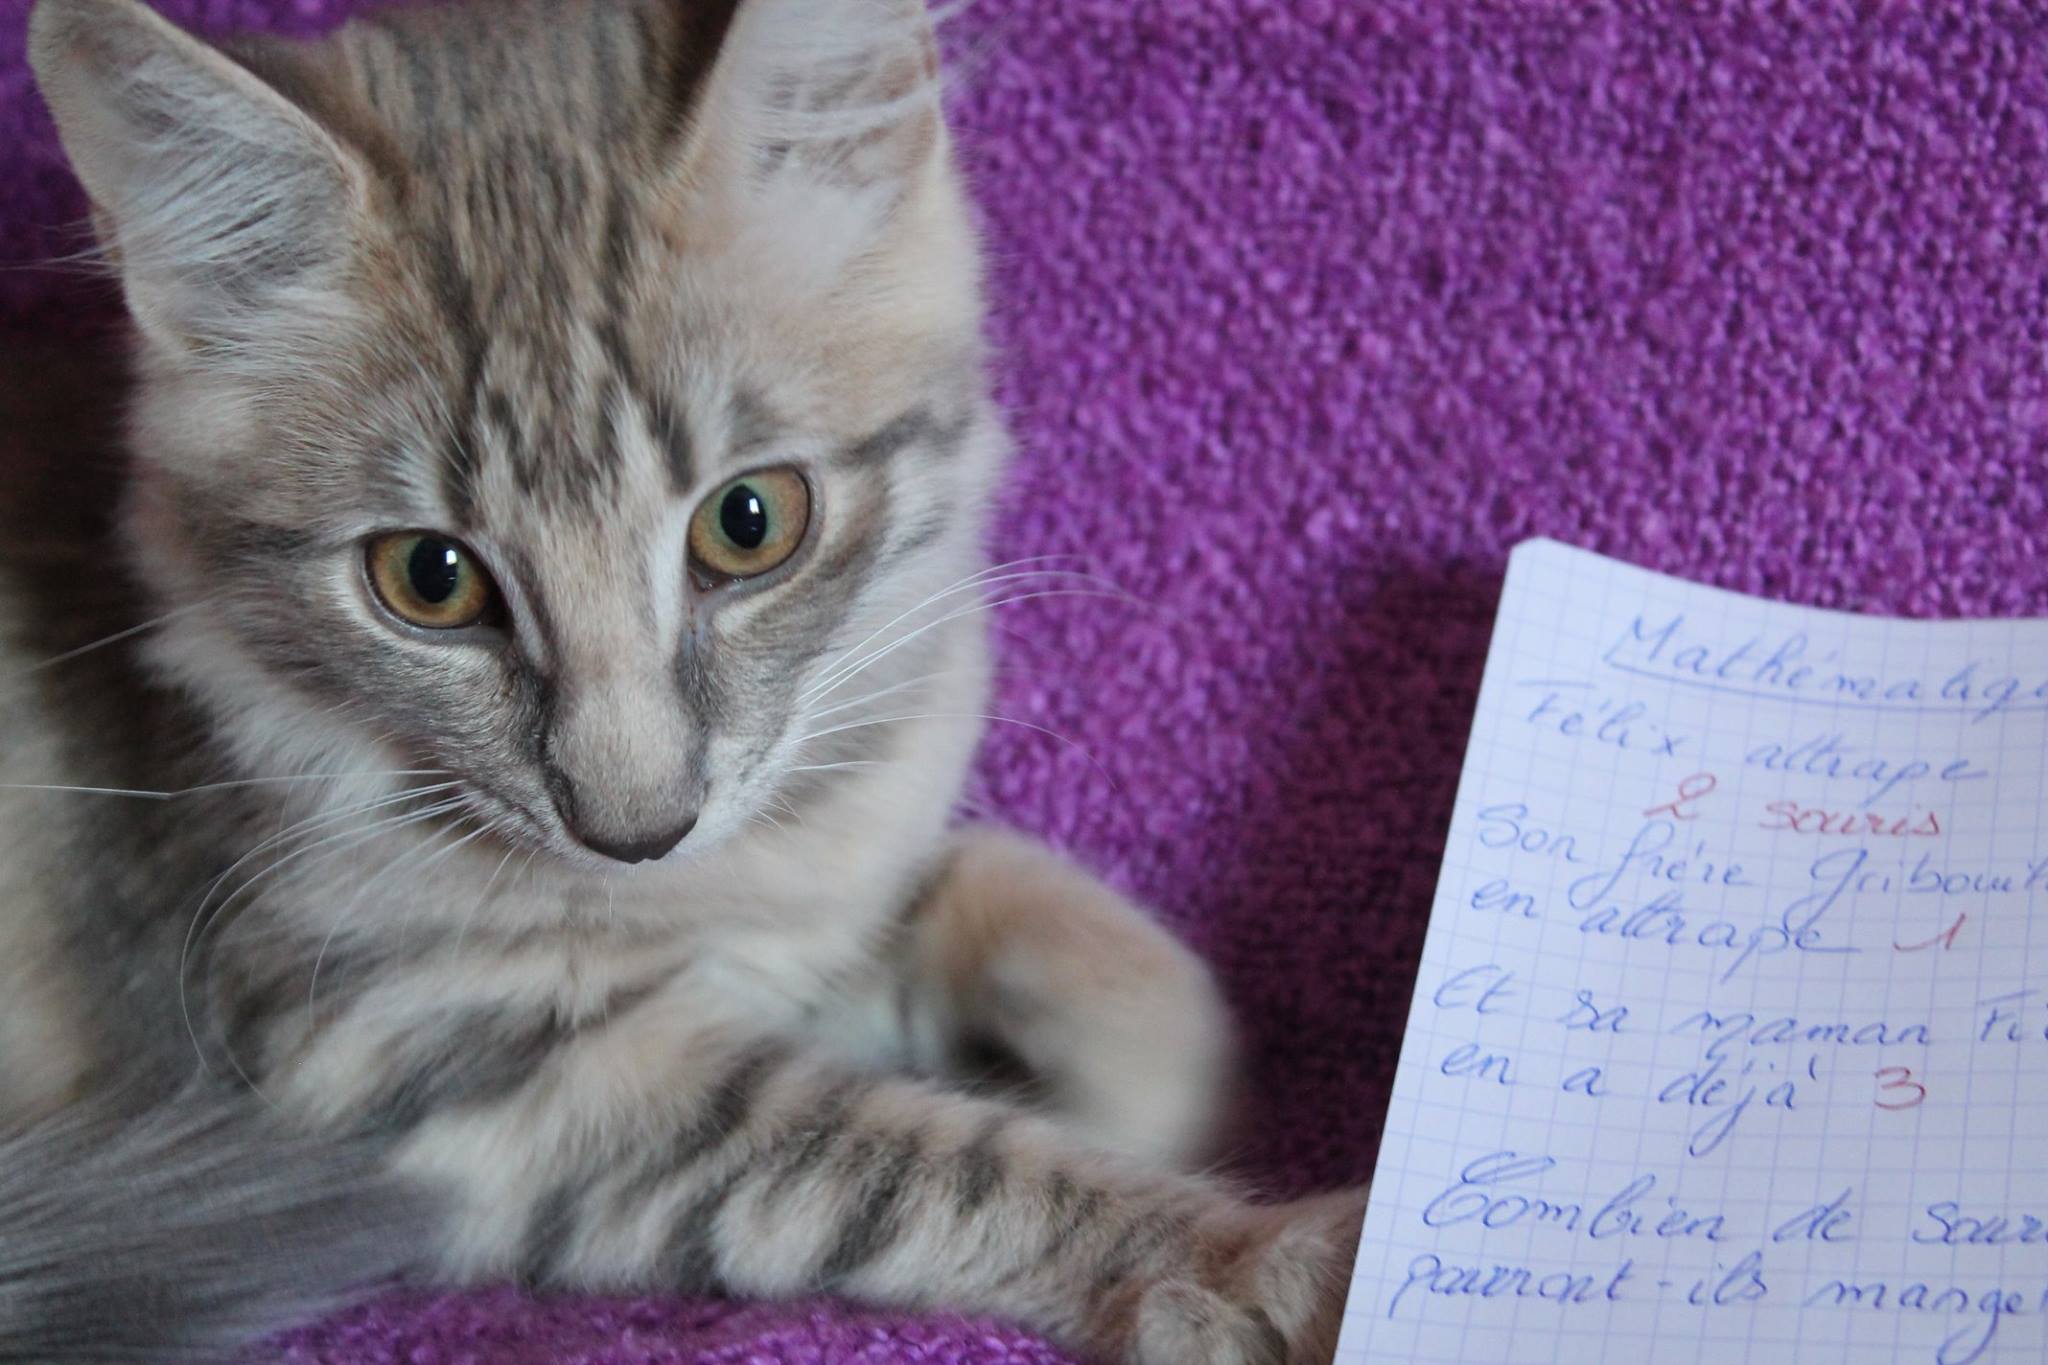 Mathématiqu
Félix attrape
2 souris
Son frère Gribouil
en attrape 1
Et sa maman Fi
en a déjà 3
Combien de sour
pourront-ils manger